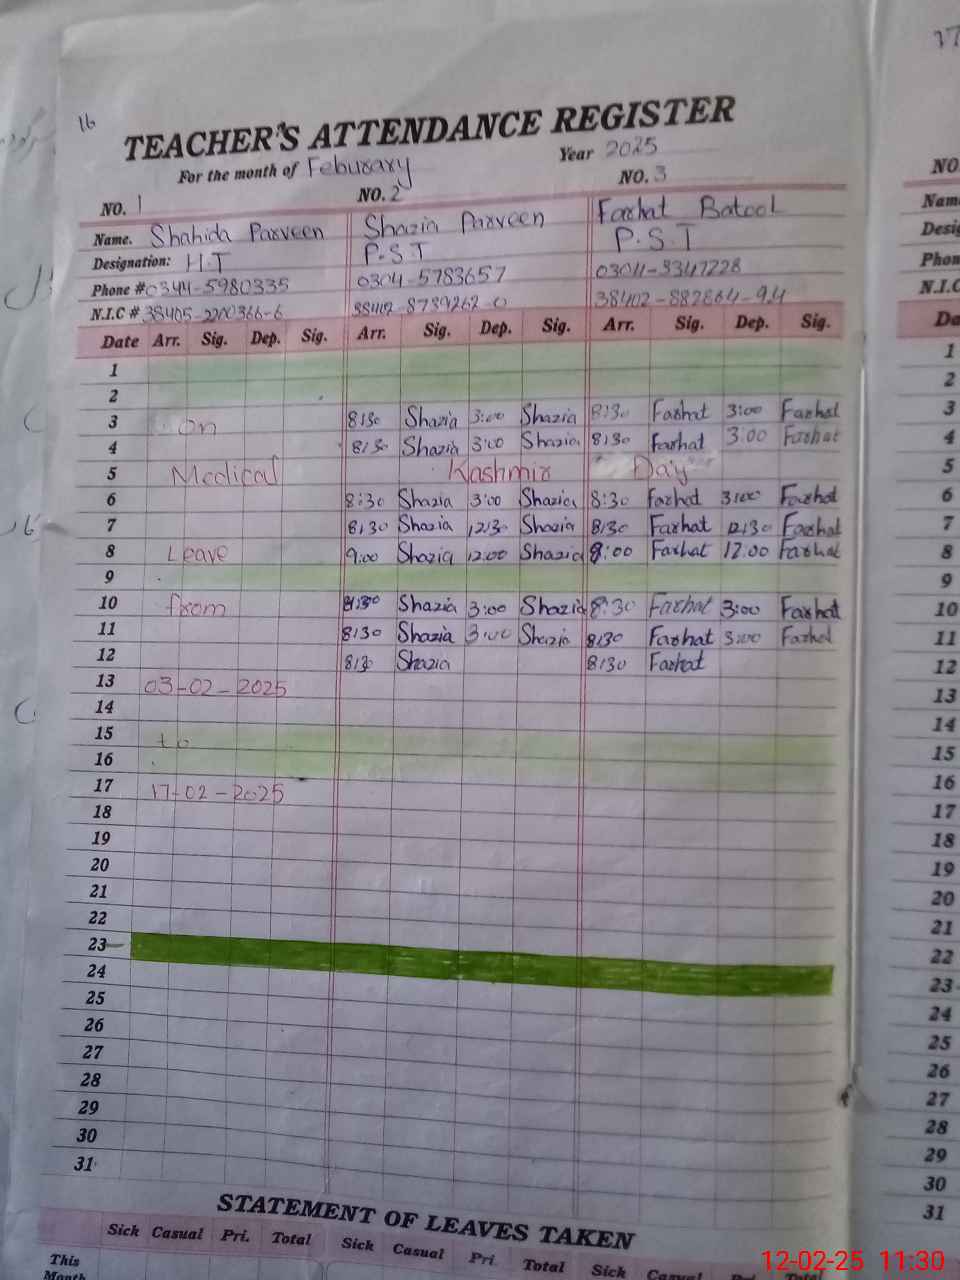 16
TEACHER'S ATTENDANCE REGISTER
For the month of Feburary Year 2025
NO. 1 NO. 2 NO. 3
Name. Shahida Parveen Shazia Parveen Farhat Batool
Designation: H.T P.S.T P.S.T
Phone # 0344-5980335 0304-5783657 0304-3347228
N.I.C # 38405-2200366-6 38402-8789262-0 38402-882864-9.4
Date Arr. Sig. Dep. Sig. Arr. Sig. Dep. Sig. Arr. Sig. Dep. Sig.
1
2
3 on 8:30 Shazia 3:00 Shazia 8:30 Farhat 3:00 Farhat
4 8:30 Shazia 3:00 Shazia 8:30 Farhat 3:00 Farhat
5 Medical Kashmir Day
6 8:30 Shazia 3:00 Shazia 8:30 Farhat 3:00 Farhat
7 8:30 Shazia 12:30 Shazia 8:30 Farhat 12:30 Farhat
8 Leave 9:00 Shazia 12:00 Shazia 9:00 Farhat 12:00 Farhat
9
10 from 8:30 Shazia 3:00 Shazia 8:30 Farhat 3:00 Farhat
11 8:30 Shazia 3:00 Shazia 8:30 Farhat 3:00 Farhat
12 8:30 Shazia 8:30 Farhat
13 03-02-2025
14
15 to
16
17 17-02-2025
18
19
20
21
22
23
24
25
26
27
28
29
30
31
STATEMENT OF LEAVES TAKEN
Sick Casual Pri. Total Sick Casual Pri. Total Sick Casual Pri. Total
This
Month
17
NO.
N.I.C
1
2
3
4
5
6
7
8
9
10
11
12
13
14
15
16
17
18
19
20
21
22
23
24
25
26
27
28
29
30
31
12-02-25 11:30